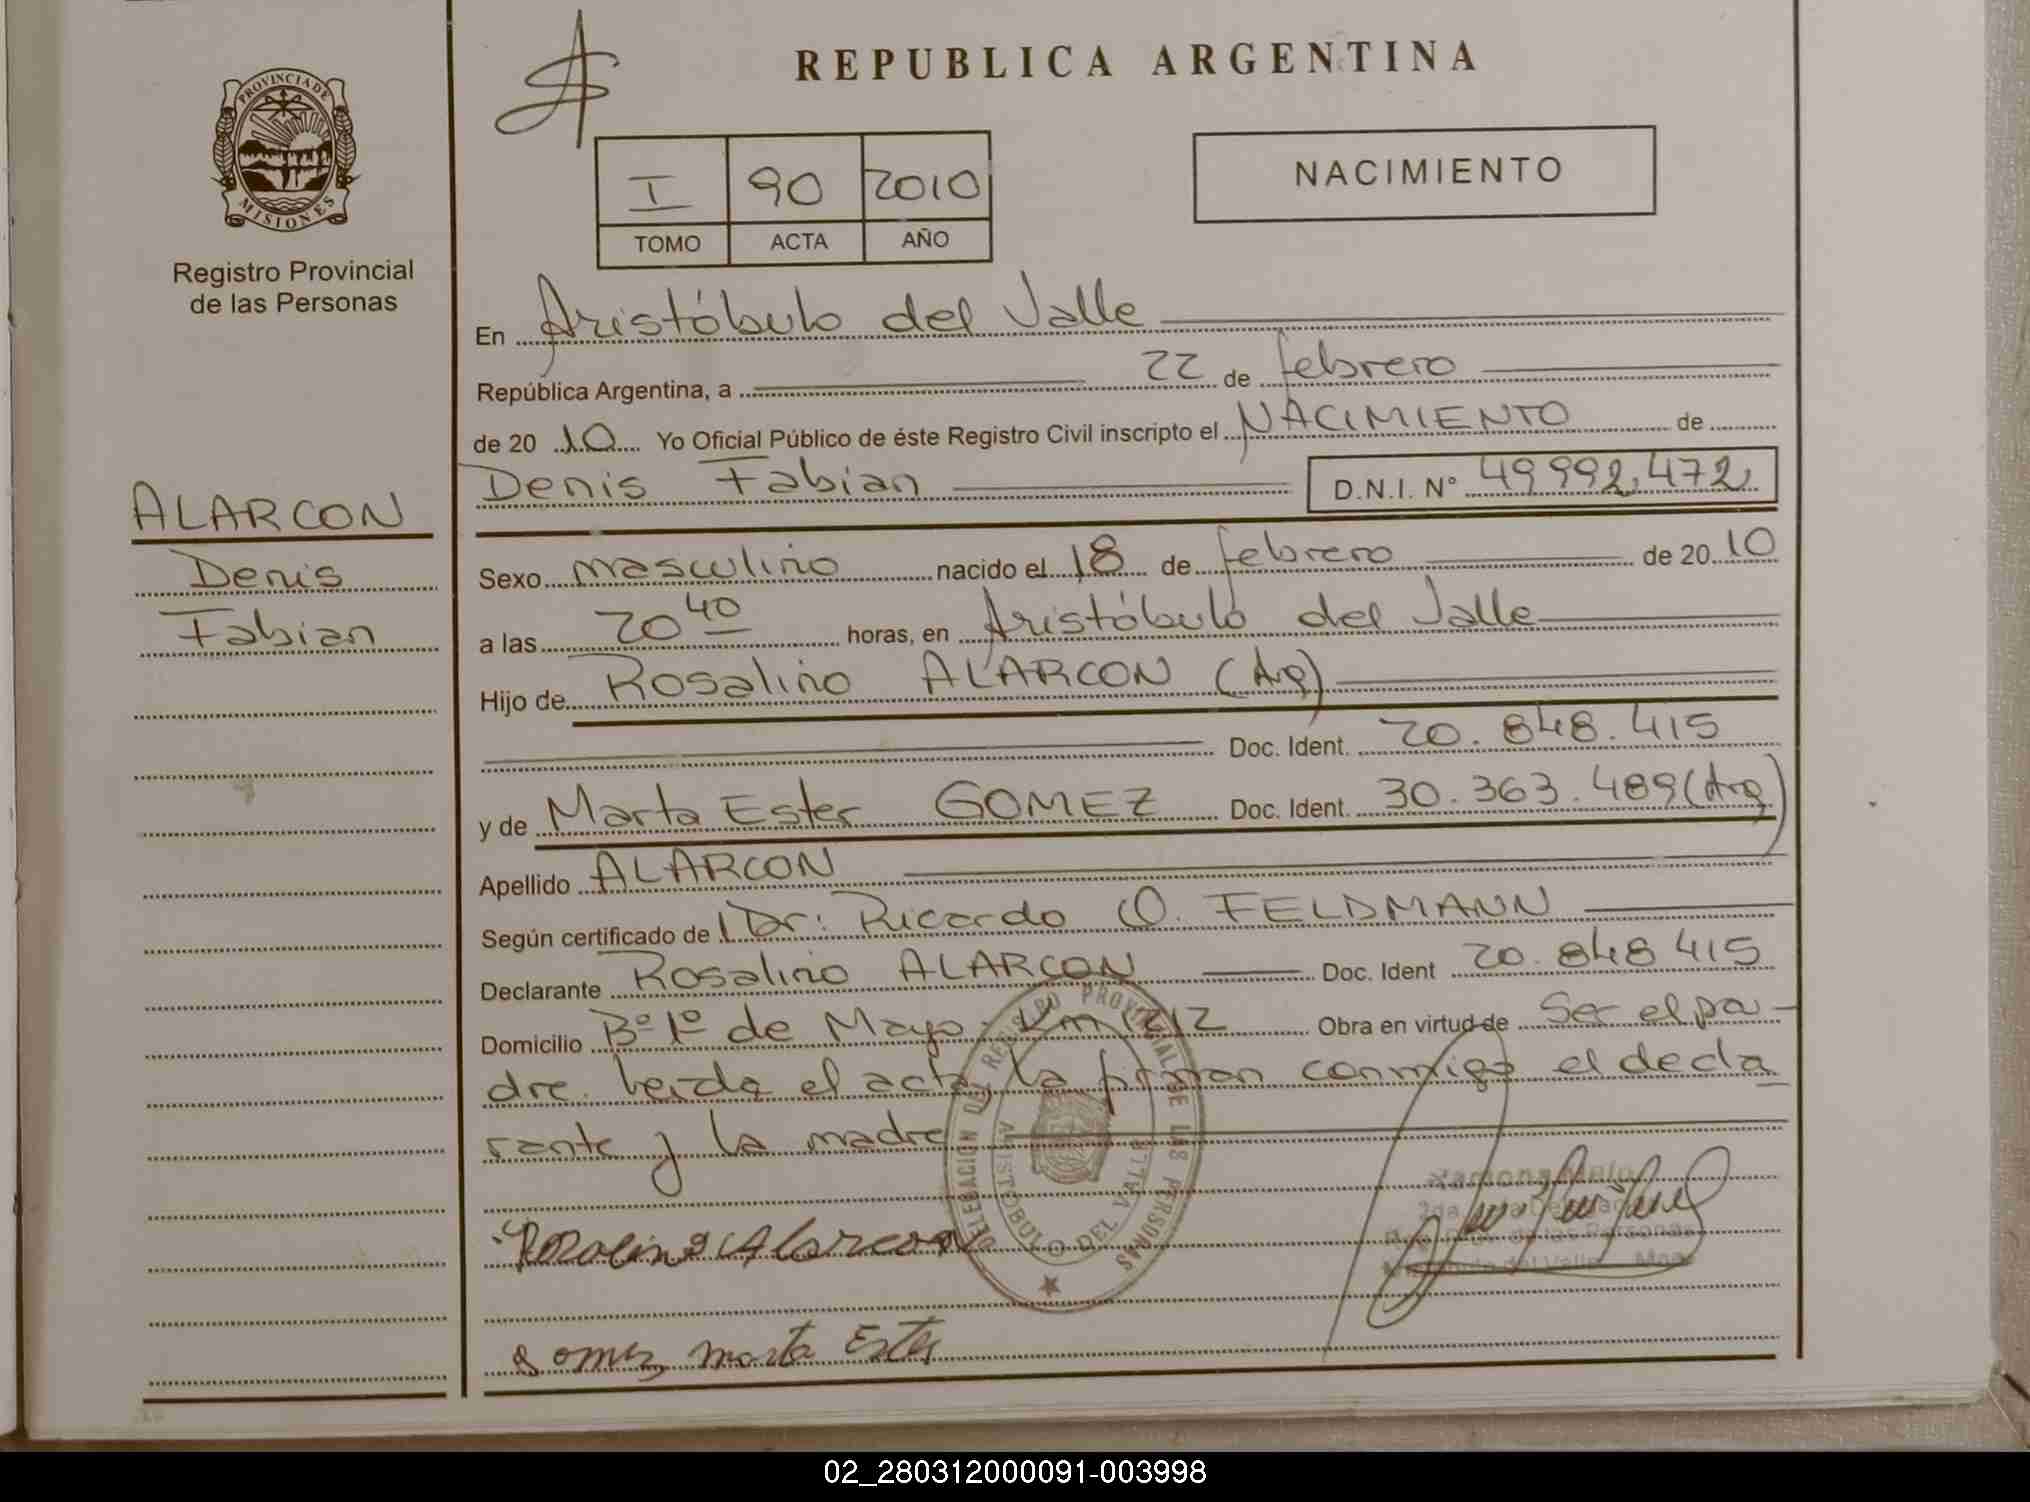 PROVINCIA DE
MISIONES
Registro Provincial
de las Personas
ALARCON
Denis
Fabian
REPUBLICA ARGENTINA
I 90 2010
TOMO ACTA AÑO
NACIMIENTO
En Aristóbulo del Valle
República Argentina, a 22 de febrero
de 20 10 Yo Oficial Público de éste Registro Civil inscripto el NACIMIENTO de
Denis Fabian D.N.I. Nº 49.992.472
Sexo masculino nacido el 18 de febrero de 20 10
a las 20 40 horas, en Aristóbulo del Valle
Hijo de Rosalino ALARCON (Arg)
Doc. Ident. 20.848.415
y de Marta Ester GOMEZ Doc. Ident. 30.363.489 (Arg)
Apellido ALARCON
Según certificado de Dr: Ricardo O. FELDMANN
Declarante Rosalino ALARCON Doc. Ident 20.848 415
Domicilio Bº 1º de Mayo. Km 1212 Obra en virtud de Ser el pa-
dre. Leida el acta, la firman conmigo el decla
rante y la madre
DELEGACION DEL REGISTRO PROVINCIAL DE LAS PERSONAS
ARISTOBULO DEL VALLE
Rosalino Alarcon
Gomez marta Ester
02_280312000091-003998